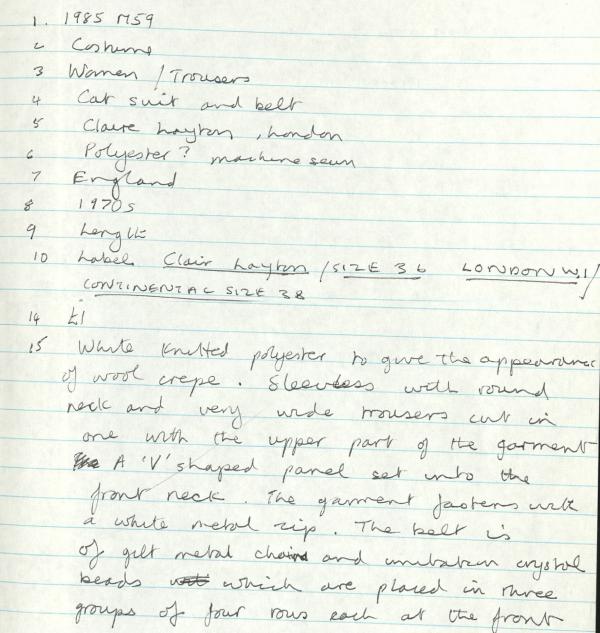 1. 1985 M59
2 Costume
3 Women / Trousers
4 Cat suit and belt
5 Claire Layton, London
6 Polyester? machine sewn
7 England
8 1970s
9 Length
10 Label Clair Layton / SIZE 36 LONDON W.1/
CONTINENTAL SIZE 38
14 £1
15 White knitted polyester to give the appearance
of wool crepe. Sleeveless with round
neck and very wide trousers cut in
one with the upper part of the garment
A 'V' shaped panel set into the
front neck. The garment fastens with
a white metal zip. The belt is
of gilt metal chains and imitation crystal
beads which are placed in three
groups of four rows each at the front